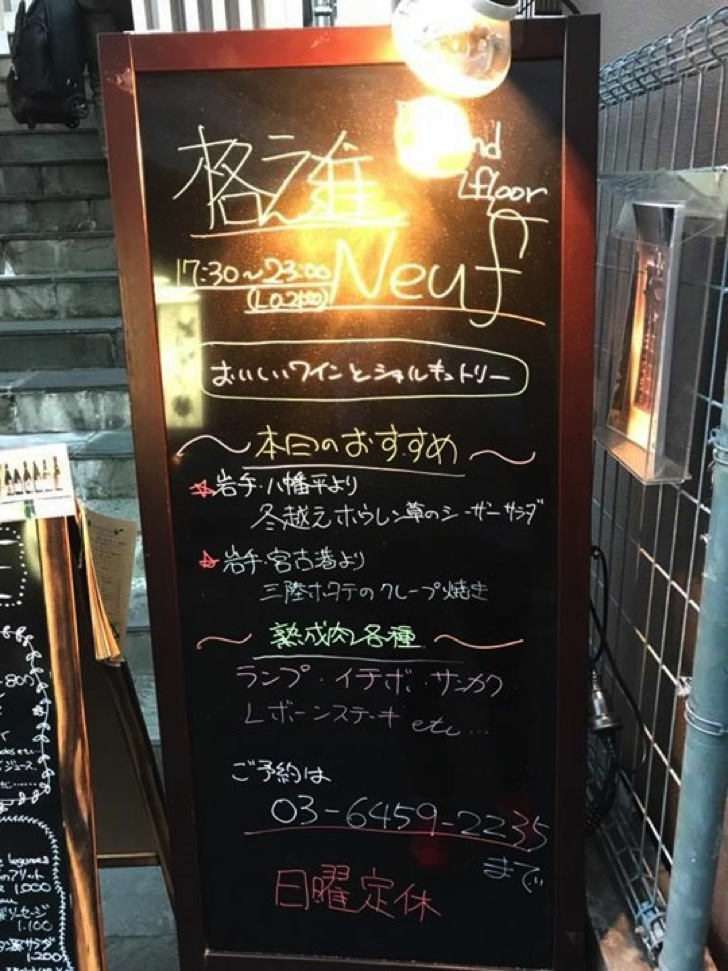 floor
17:30～23:00
Neuf
おいしいワインとシャルキュトリー
～本日のおすすめ～
☆岩手・八幡平より
冬越えホウレン草のシーザーサラダ
☆岩手・宮古港より
三陸ホタテのクレープ焼き
～熟成肉各種～
ランプ・イチボ・サンカク
Lボーンステーキ etc...
ご予約は
03-6459-2235
まで
日曜定休
ジュース
1.000
ソーセージ
1.100
サラダ
1.200